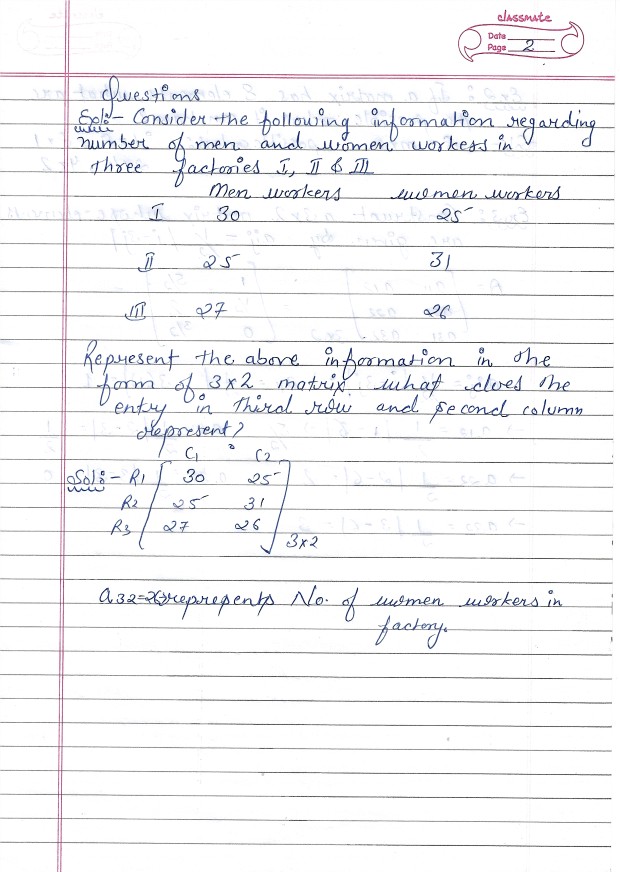 classmate
Date
Page 2
Questions
Ex1:- Consider the following information regarding
number of men and women workers in
three factories I, II & III
Men workers women workers
I 30 25
II 25 31
III 27 26
Represent the above information in the
form of 3x2 matrix. what does the
entry in third row and second column
represent?
C1 C2
Sol:- R1 [ 30 25 ]
R2 25 31
R3 27 26 3x2
a32=26 represents No. of women workers in
factory.